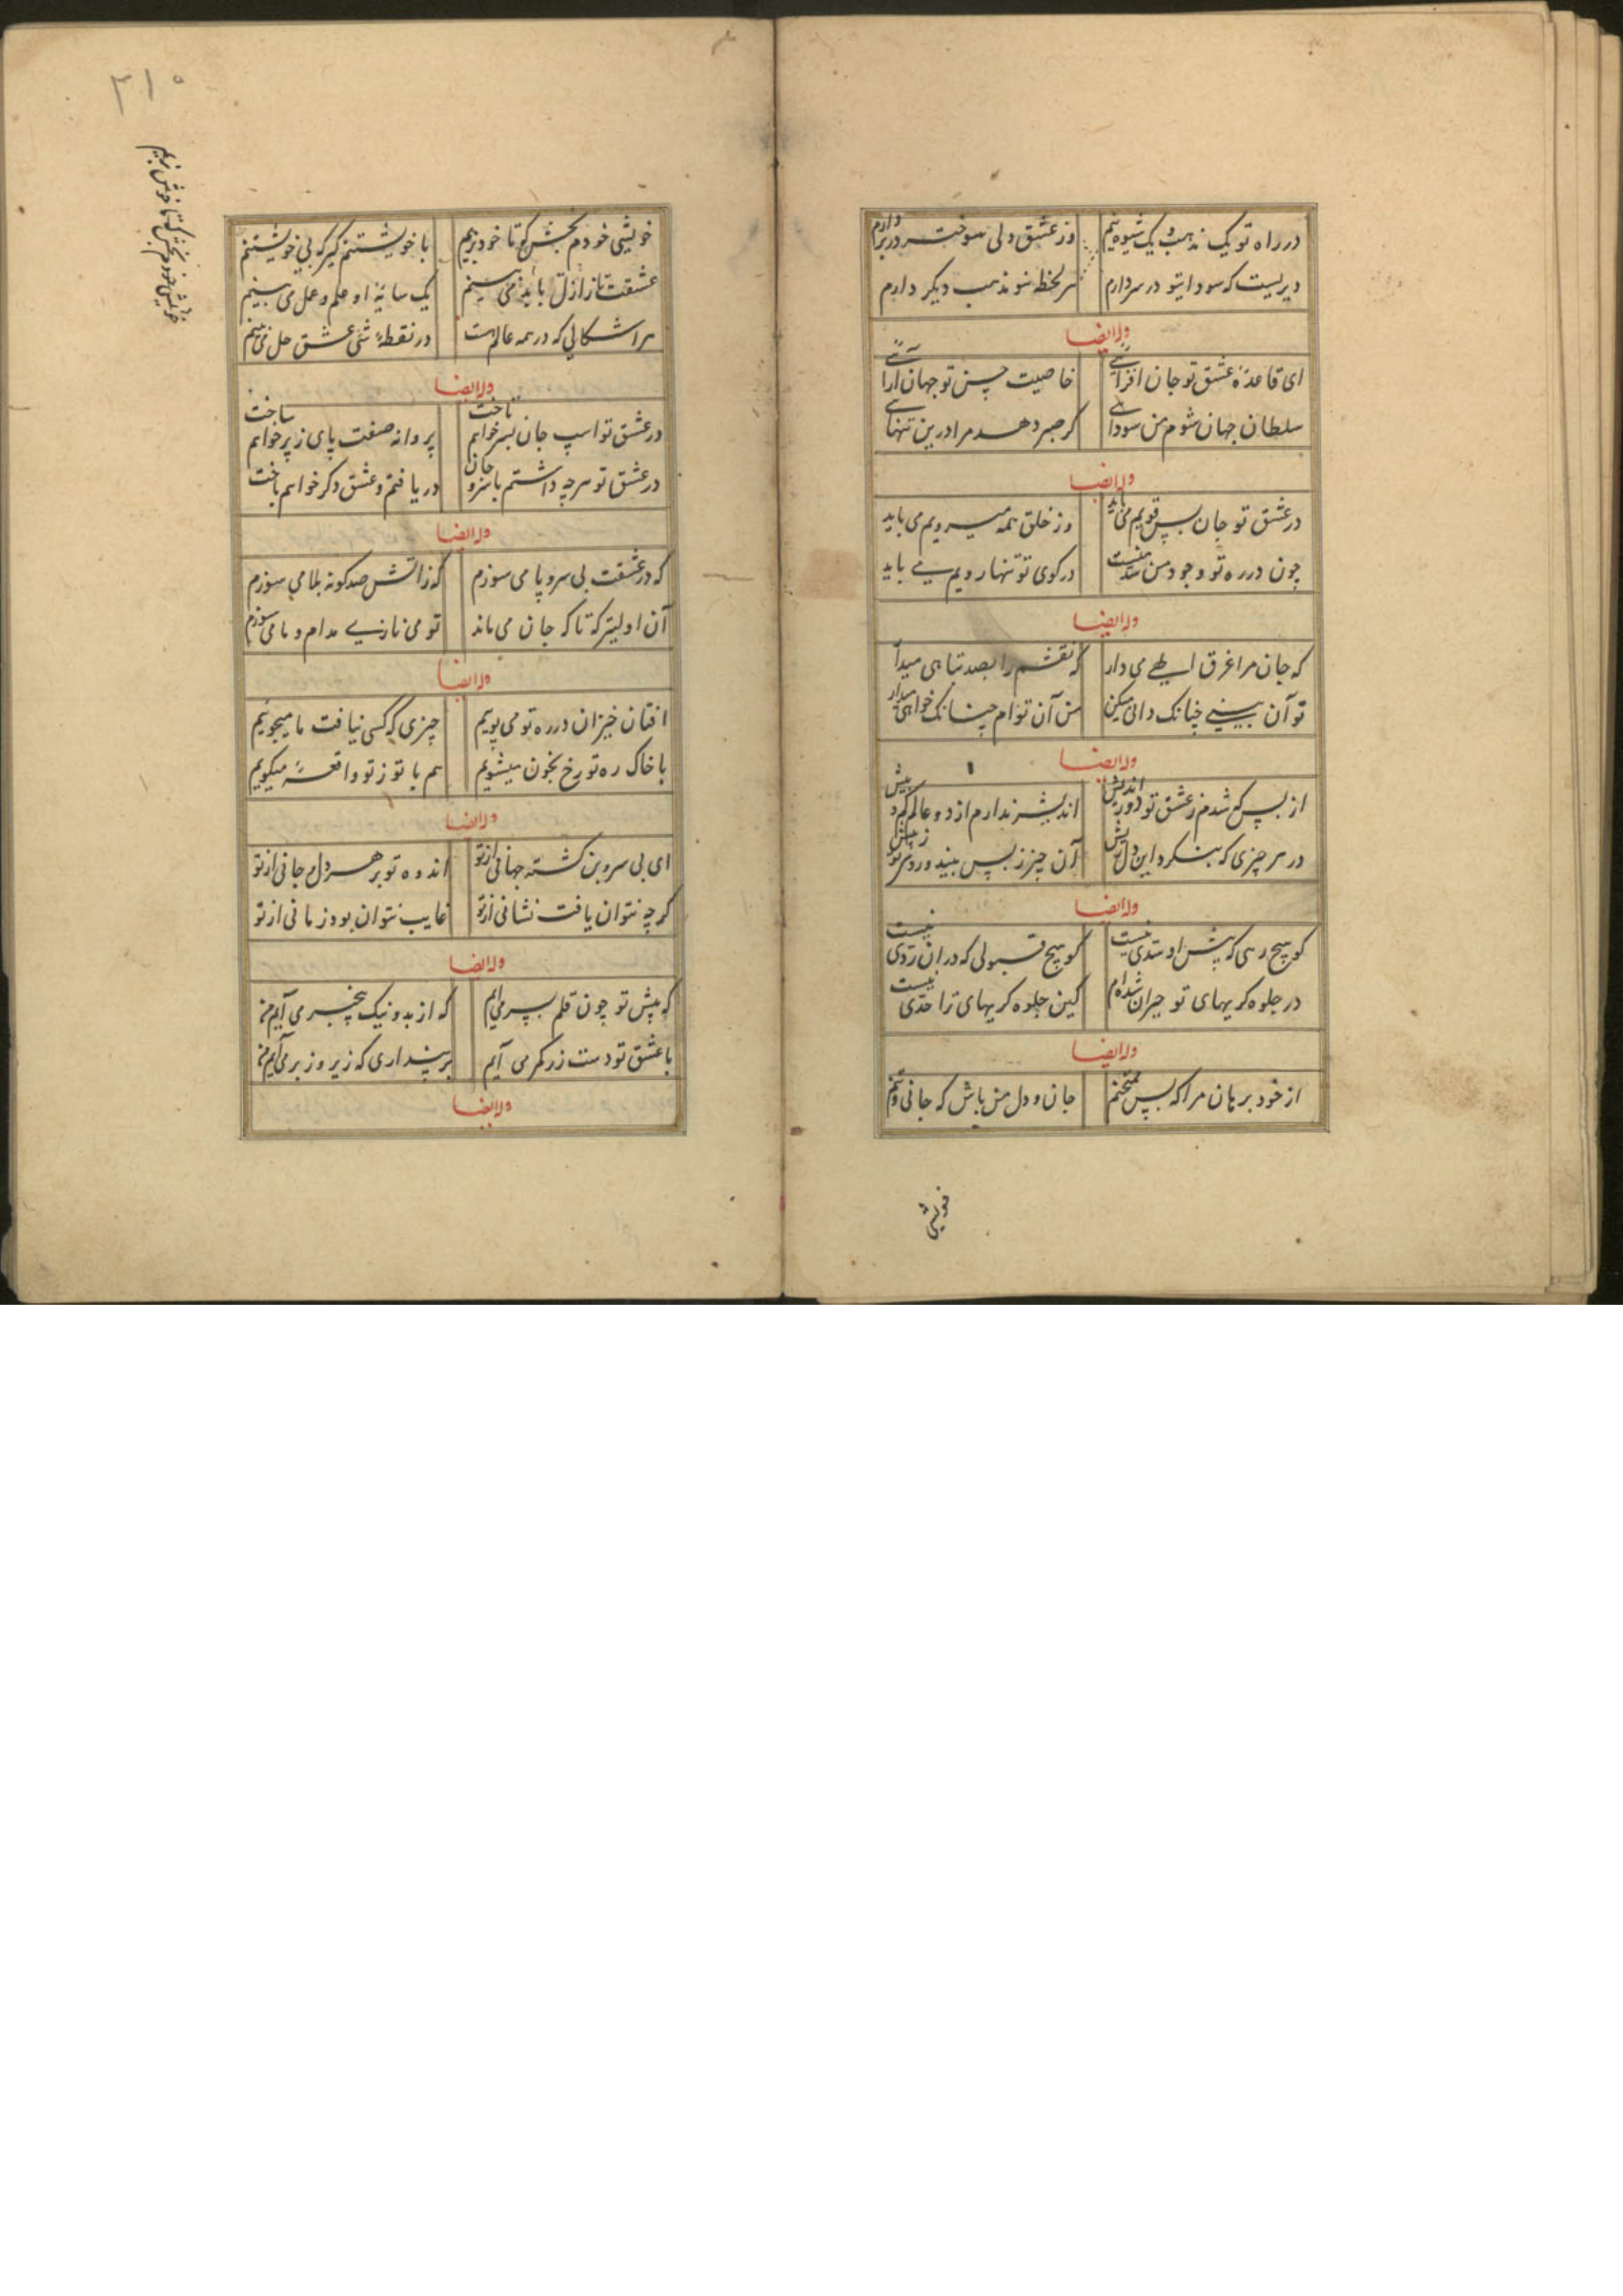 در راه تو یک مذهب و یک شیوه نیم وز عشق دلی سوخته در بر دارم
دیریست که سودایتو در سر دارم هر لحظه نو مذهب دیگر دارم
وله ایضا
ای قاعدهٔ عشق تو جان افزائے خاصیت حسن تو جهان آرائے
سلطان جهان شوم من سودائے گر صبر دهد مرا درین تنهائے
وله ایضا
در عشق تو جان بس قویم می باید وز خلق همه میرویم می باید
چون در ره تو وجود من شد در کوی تو تنها رویم می باید
وله ایضا
که جان مرا غرق الهے می دار که نقشم را بصد تباهی میدار
تو آن بینے چنانک دانی میکن من آن توام چنانک خواهی میدار
وله ایضا
از بس که شدم ز عشق تو دور اندیش اندیشه ندارم از دو عالم کم و بیش
در هر چیزی که بنگرد این دل ریش آن چیز ز پس بیند و روی تو ز پیش
وله ایضا
کو هیچ رهی که پیش او سدی نیست کو هیچ قبولی که در آن ردی نیست
در جلوه گریهای تو حیران شده ام کین جلوه گریهای ترا حدی نیست
وله ایضا
از خود برهان مرا که بس ممتحنم جان و دل من باش که جانی و تنم
خویشی
۳۱۰
خویشی خودم بخش که تا خود بزیم
خویشی خودم بخش که تا خود بزیم با خویشتنم گیر که بی خویشتنم
عشقت تا ز ازل باید می بینم یک سایهٔ او علم و عمل می بینم
هر اشکالی که در همه عالم هست در نقطهٔ شین عشق حل می بینم
وله ایضا
در عشق تو اسپ جان بسر خواهم تاخت پروانه صفت پای ز پر خواهم ساخت
در عشق تو هرچه داشتم باسر و جان دریافتم و عشق دگر خواهم باخت
وله ایضا
که در عشقت بی سر و پا می سوزم که زاتش صد گونه بلا می سوزم
آن اولیتر که تا که جان می ماند تو می نازے مدام و ما می سوزم
وله ایضا
افتان خیزان در ره تو می پوییم چیزی که کسی نیافت ما میجوییم
با خاک ره تو رخ بخون میشوییم هم با تو ز تو واقعه میگوییم
وله ایضا
ای بی سر و بن گشته جهانی از تو اندوه تو بر هر دل و جانی از تو
گرچه نتوان یافت نشانی از تو غایب نتوان بود زمانی از تو
وله ایضا
که پیش تو چون قلم بسر می آیم که از بد و نیک بیخبر می آیم من
با عشق تو دست در کمر می آیم بر پنداری که زیر و زبر می آیم من
وله ایضا